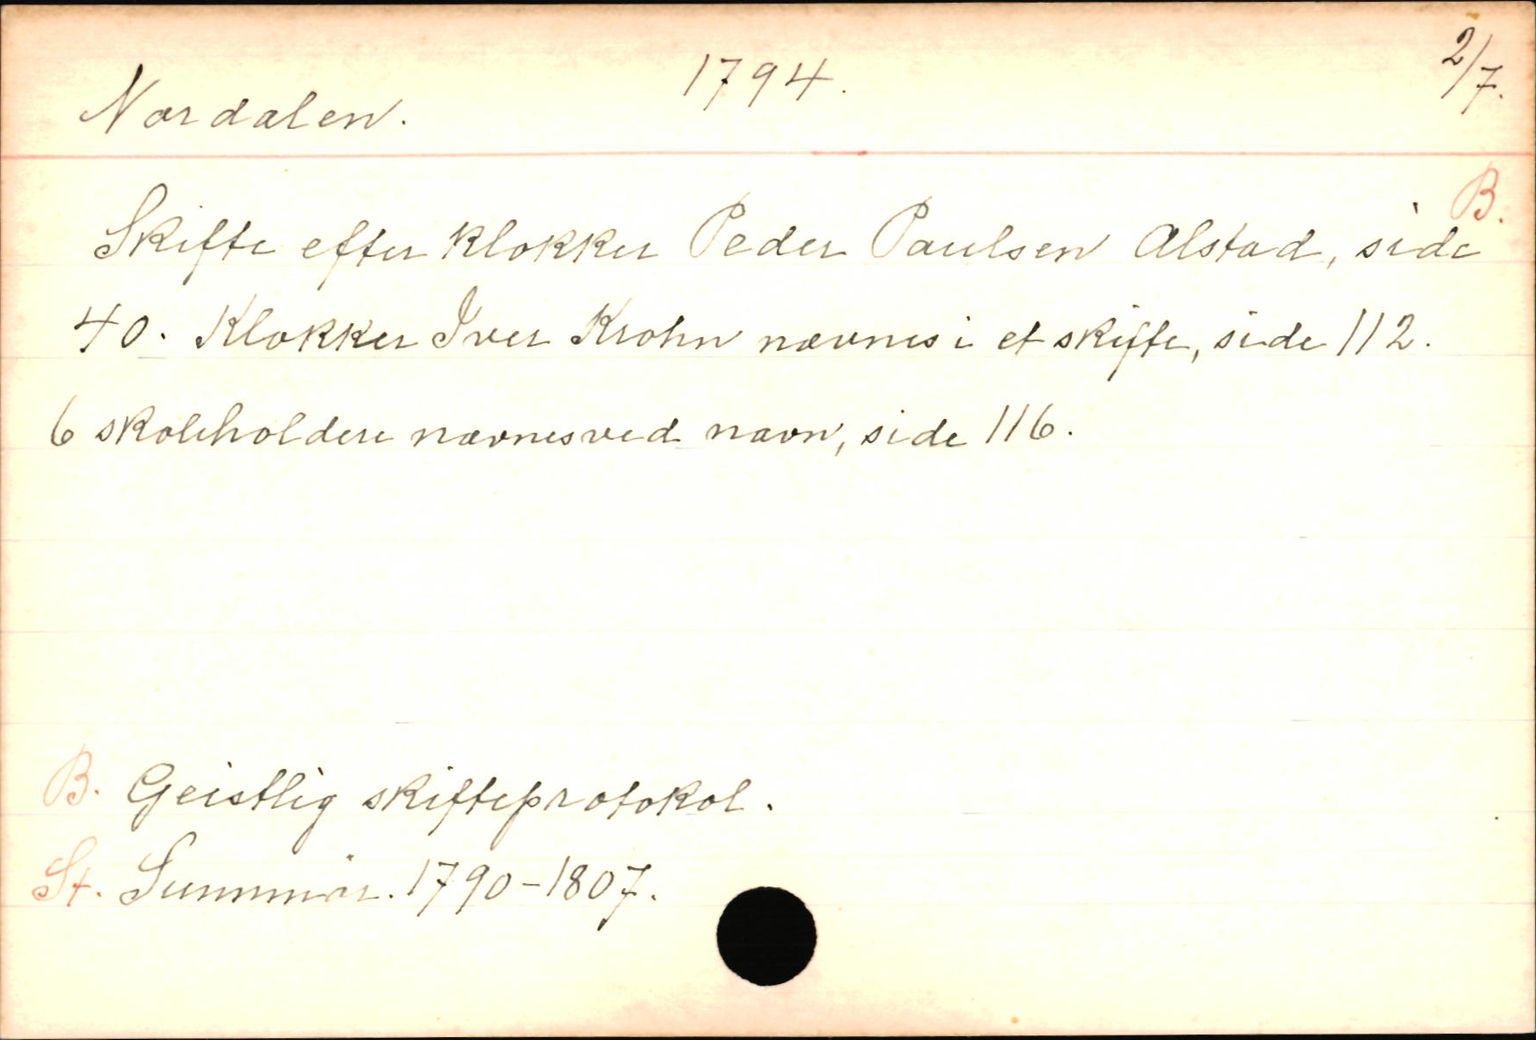 Nordalen. 1794. 2/7.
B.
Skifte efter klokker Peder Paulsen Alstad, side
40. Klokker Iver Krohn nævnes i et skifte, side 112.
6 skoleholdere nævnes ved navn, side 116.
B. Geistlig skifteprotokol.
St. Sunnmör. 1790-1807.